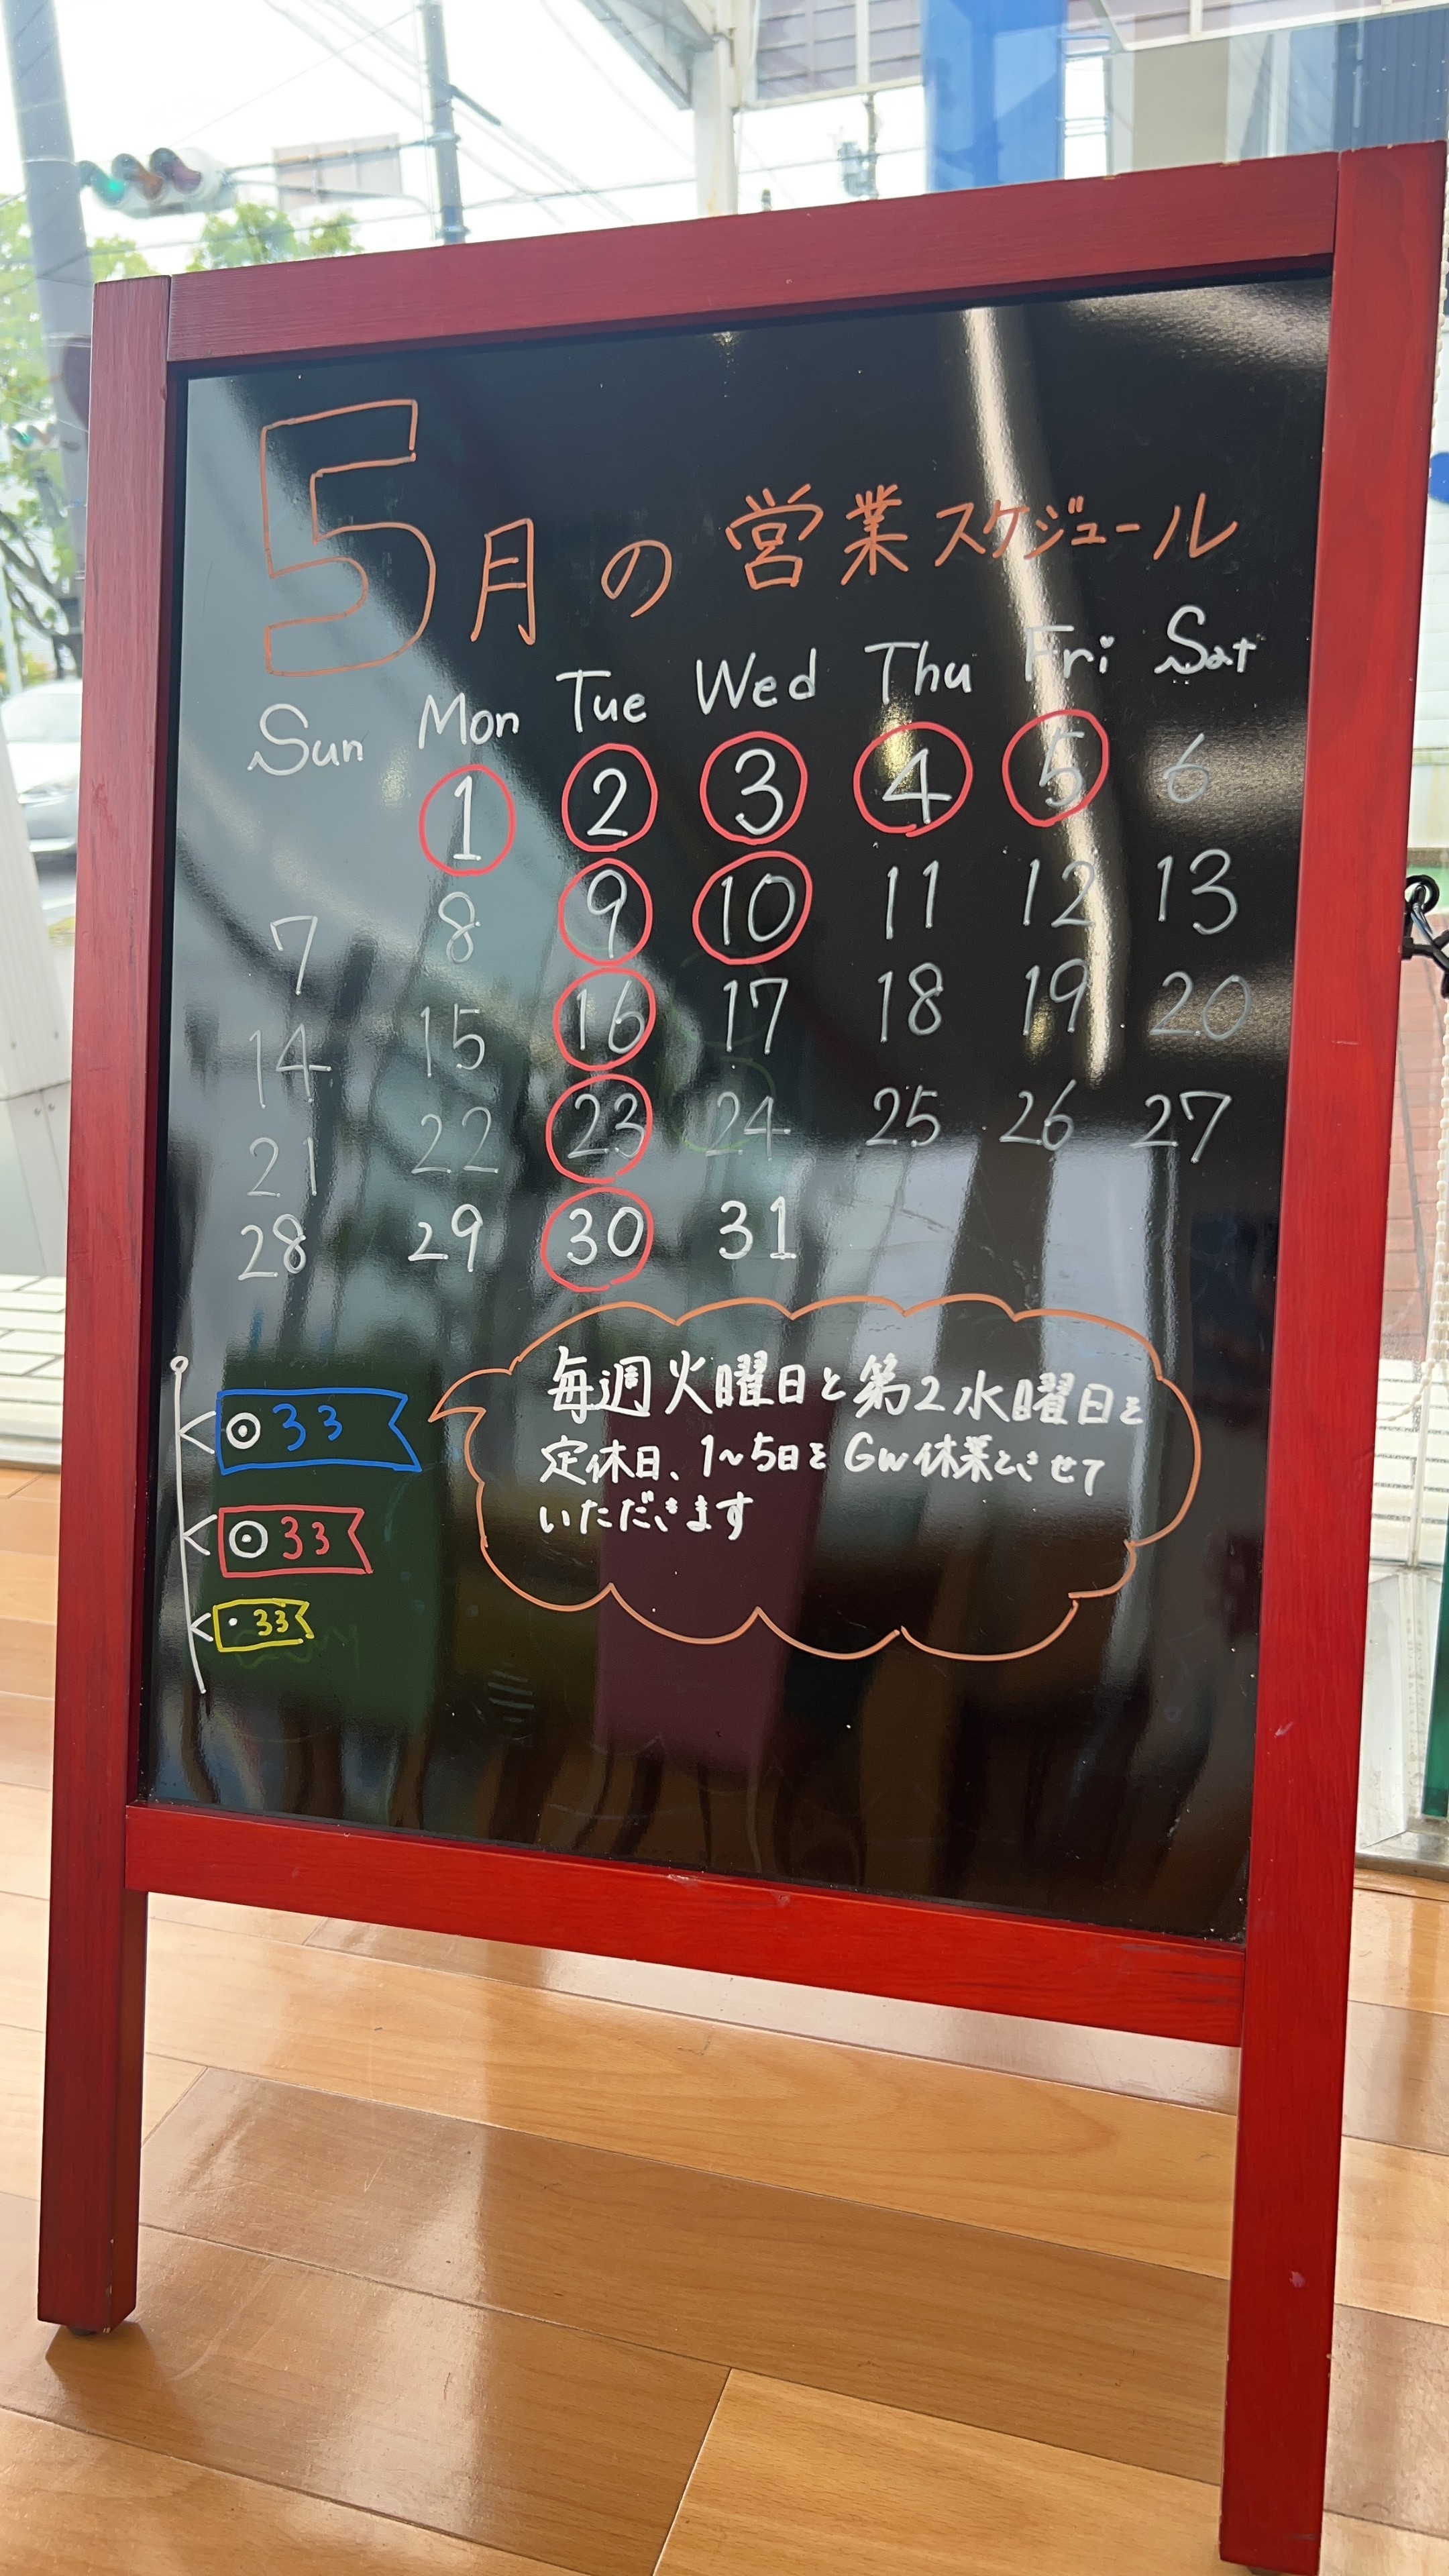 5月の営業スケジュール
Sun Mon Tue Wed Thu Fri Sat
1 2 3 4 5 6
7 8 9 10 11 12 13
14 15 16 17 18 19 20
21 22 23 24 25 26 27
28 29 30 31
毎週火曜日と第2水曜日を
定休日、1~5日をGW休業とさせて
いただきます
33
33
33